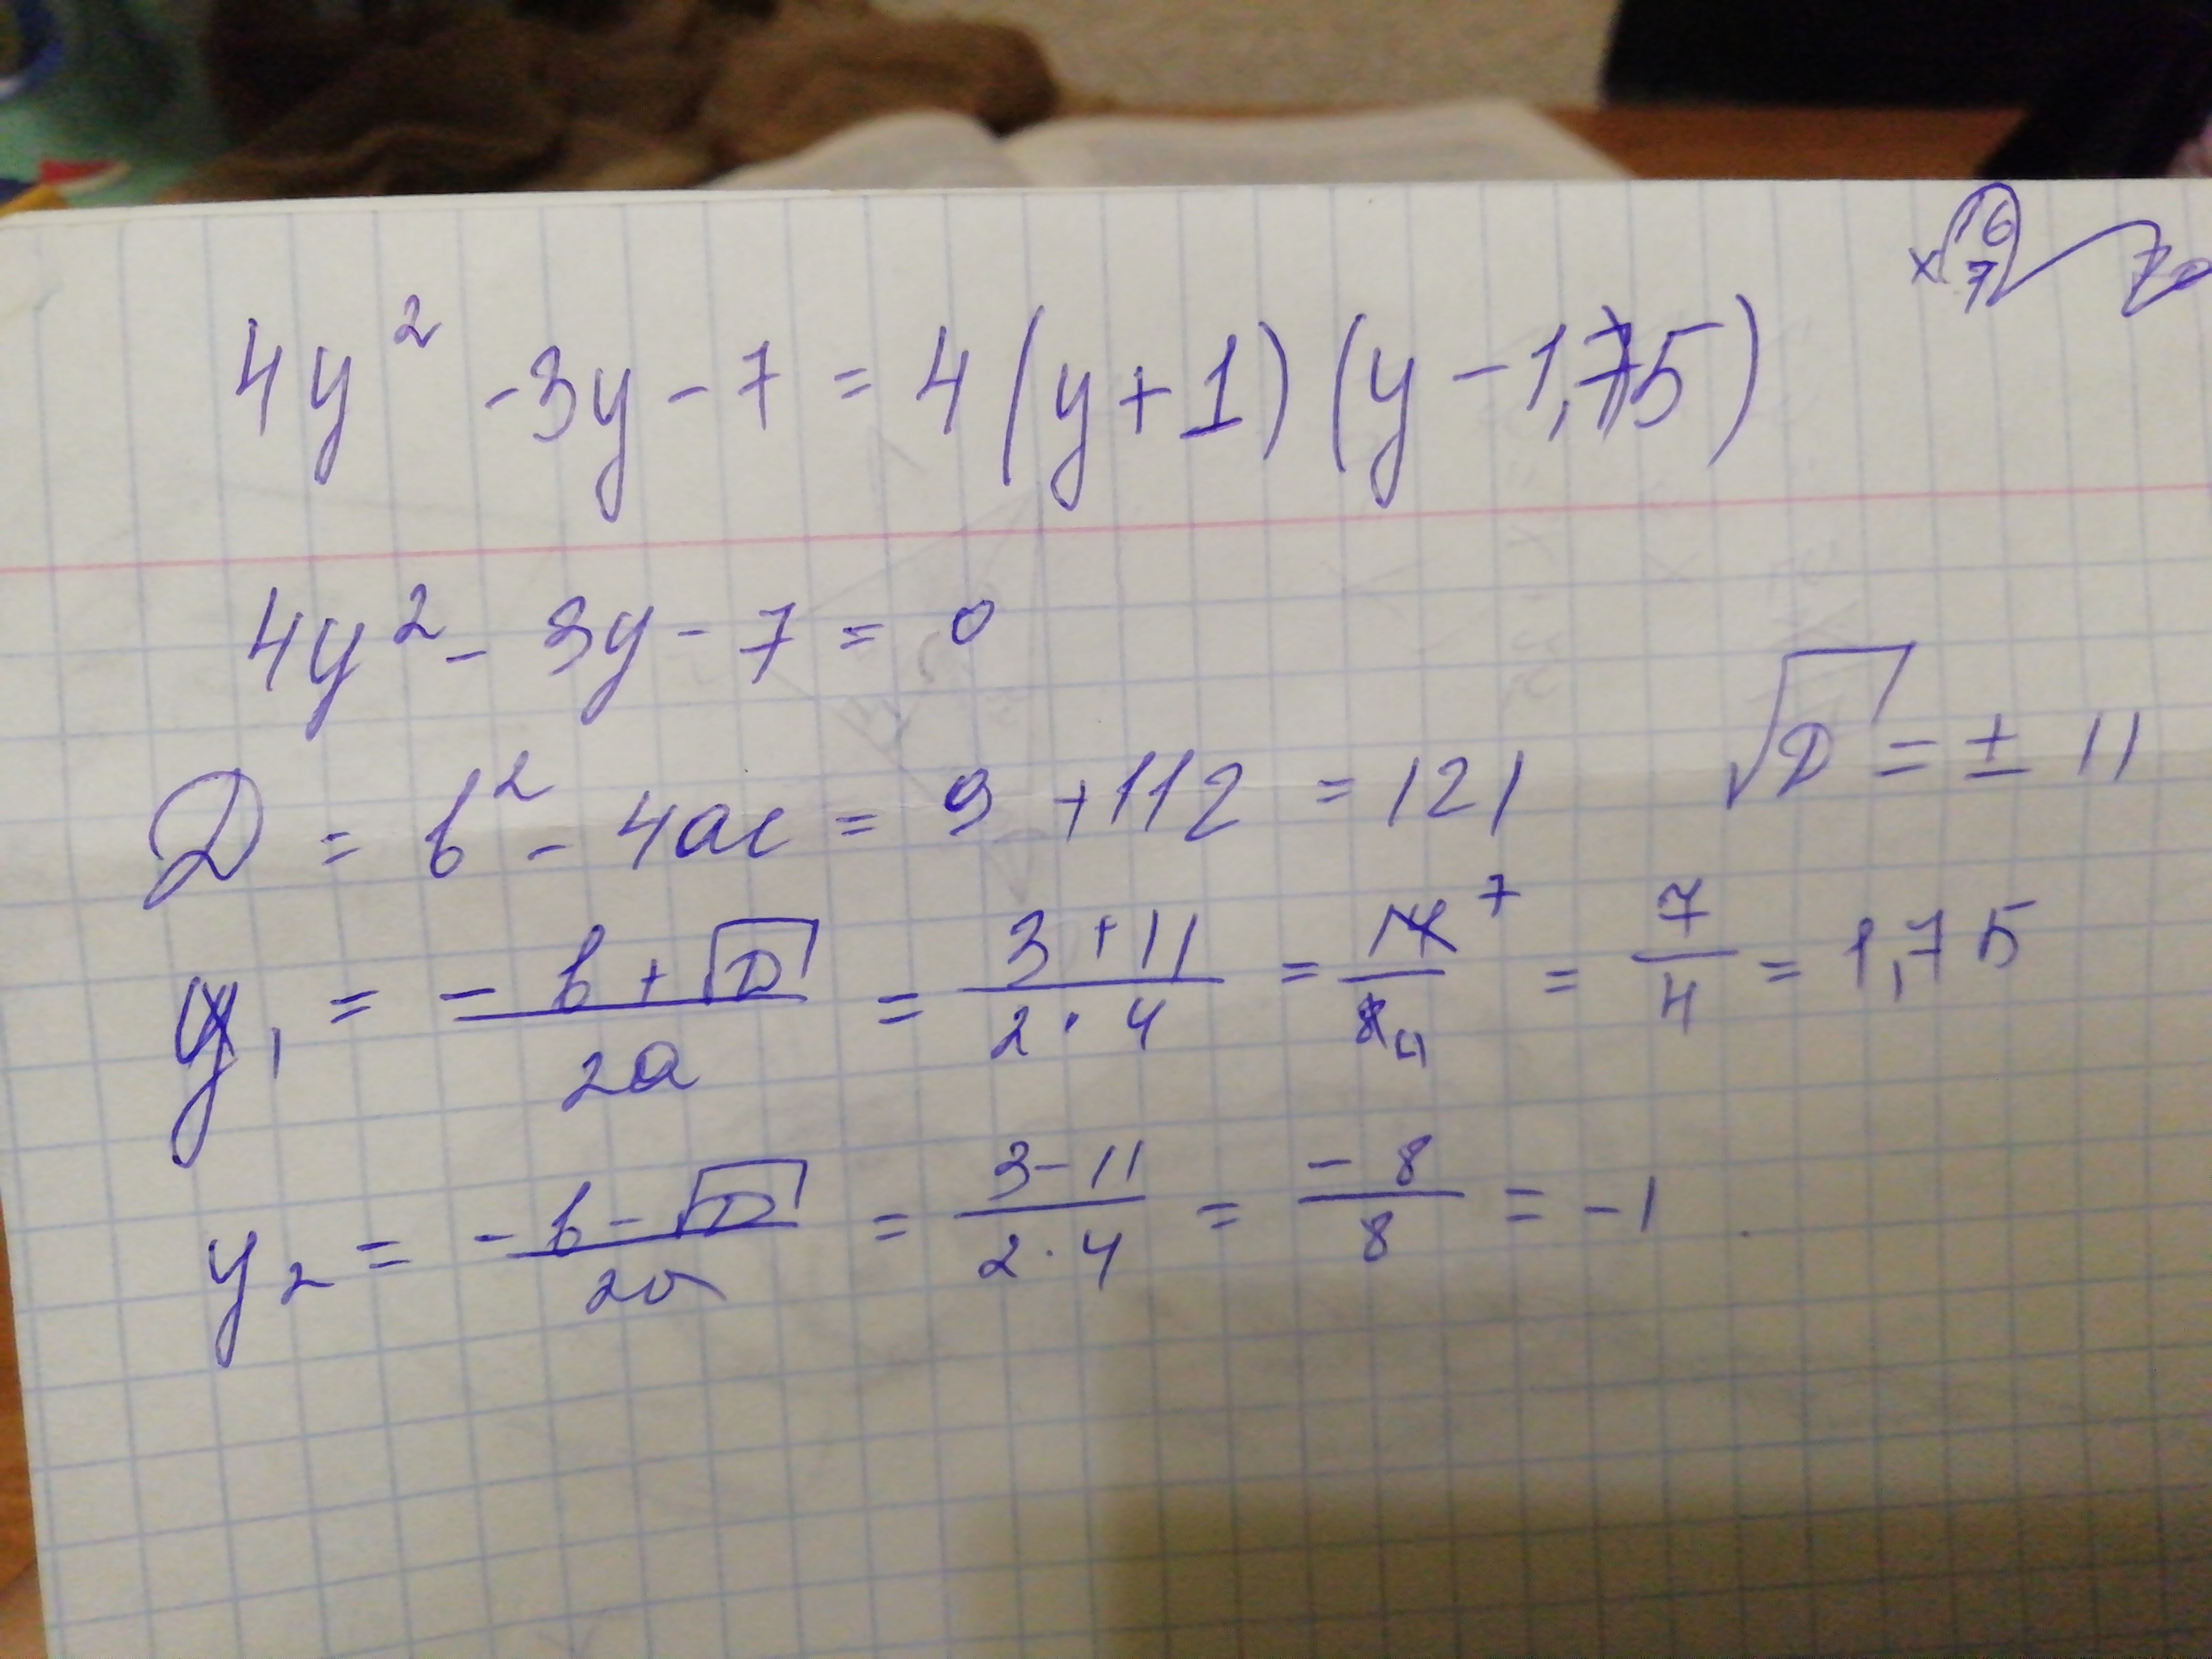 16
× 7
4y² - 3y - 7 = 4(y+1)(y-1,75)
4y² - 3y - 7 = 0
D = b² - 4ac = 9 + 112 = 121 √D = ± 11
y₁ = (-b + √D)/2a = (3 + 11)/(2 · 4) = 14/8 7/4 = 7/4 = 1,75
y₂ = (-b - √D)/2a = (3 - 11)/(2 · 4) = -8/8 = -1